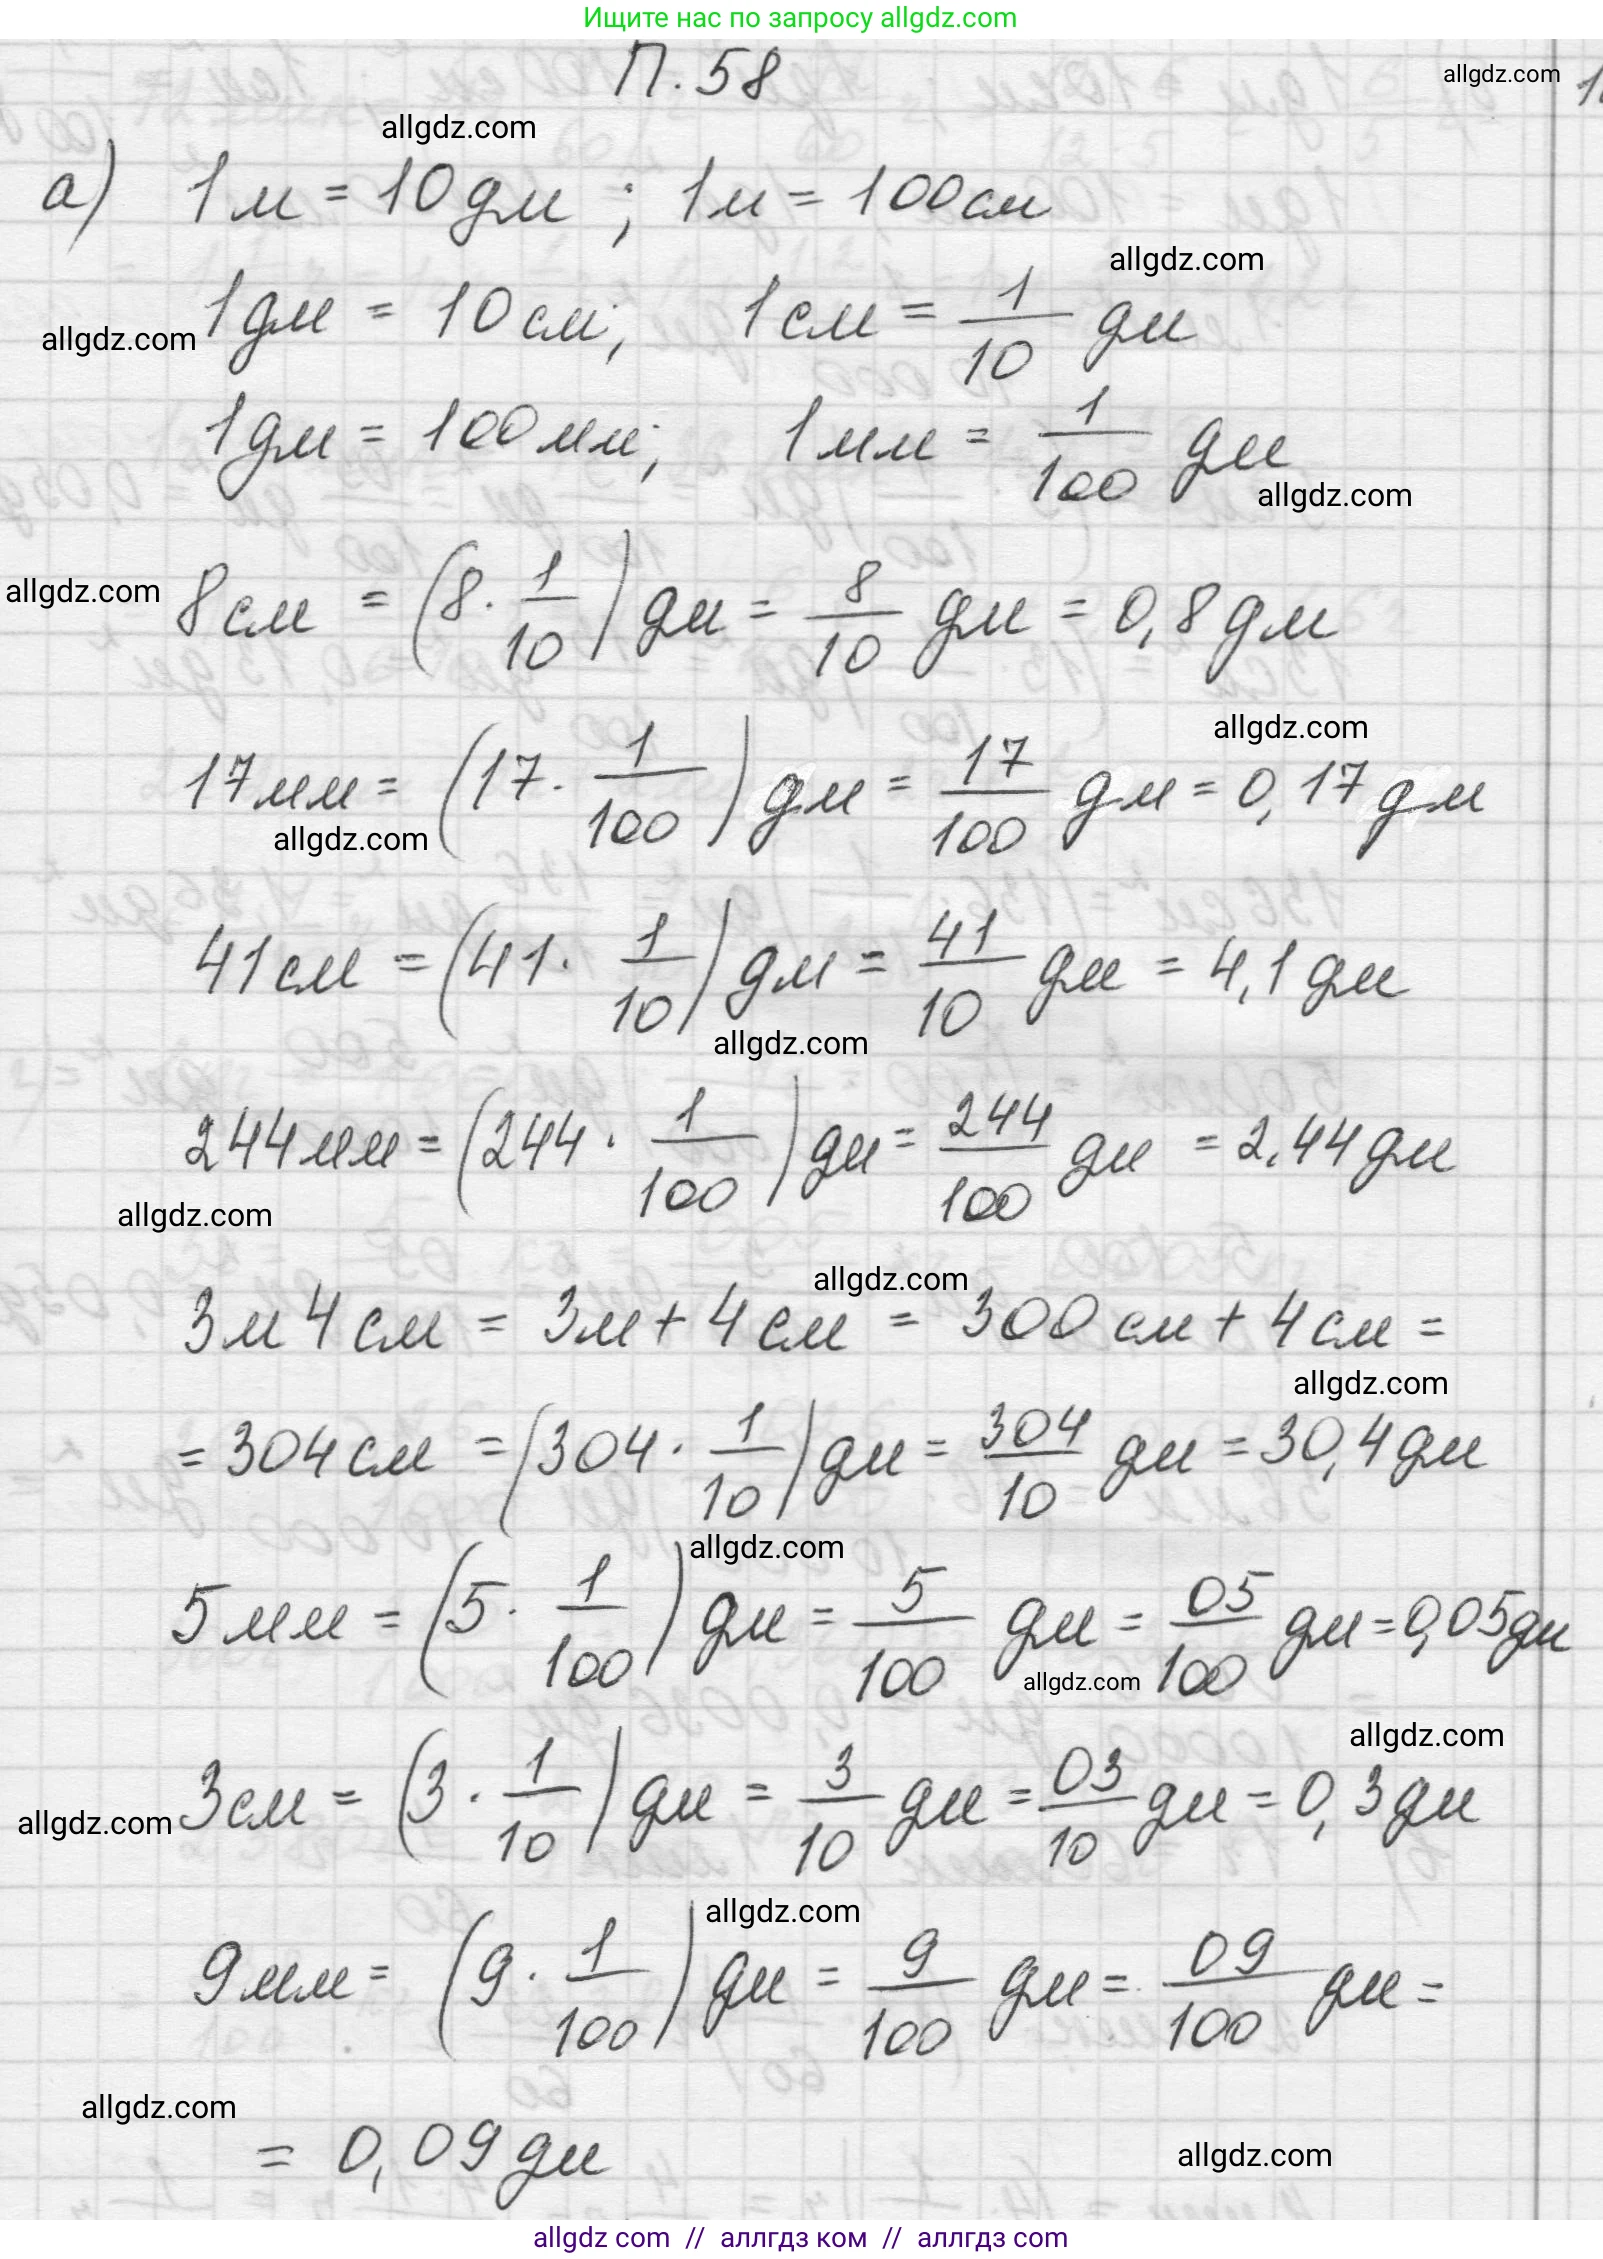 Ищите нас по запросу allgdz.com
П. 58
allgdz.com
allgdz.com
а) 1м = 10дм ; 1м = 100см
allgdz.com
1дм = 10 см; 1см = 1/10 дм
allgdz.com
1дм = 100мм; 1мм = 1/100 дм
allgdz.com
allgdz.com
8см = (8 · 1/10) дм = 8/10 дм = 0,8дм
allgdz.com
17мм = (17 · 1/100) дм = 17/100 дм = 0,17дм
allgdz.com
41см = (41 · 1/10) дм = 41/10 дм = 4,1дм
allgdz.com
244мм = (244 · 1/100) дм = 244/100 дм = 2,44дм
allgdz.com
allgdz.com
3м 4см = 3м + 4см = 300см + 4см =
allgdz.com
= 304см = (304 · 1/10) дм = 304/10 дм = 30,4дм
allgdz.com
5мм = (5 · 1/100) дм = 5/100 дм = 05/100 дм = 0,05дм
allgdz.com
allgdz.com
3см = (3 · 1/10) дм = 3/10 дм = 03/10 дм = 0,3дм
allgdz.com
allgdz.com
9мм = (9 · 1/100) дм = 9/100 дм = 09/100 дм =
allgdz.com
= 0,09дм
allgdz.com
allgdz com // аллгдз ком // аллгдз com